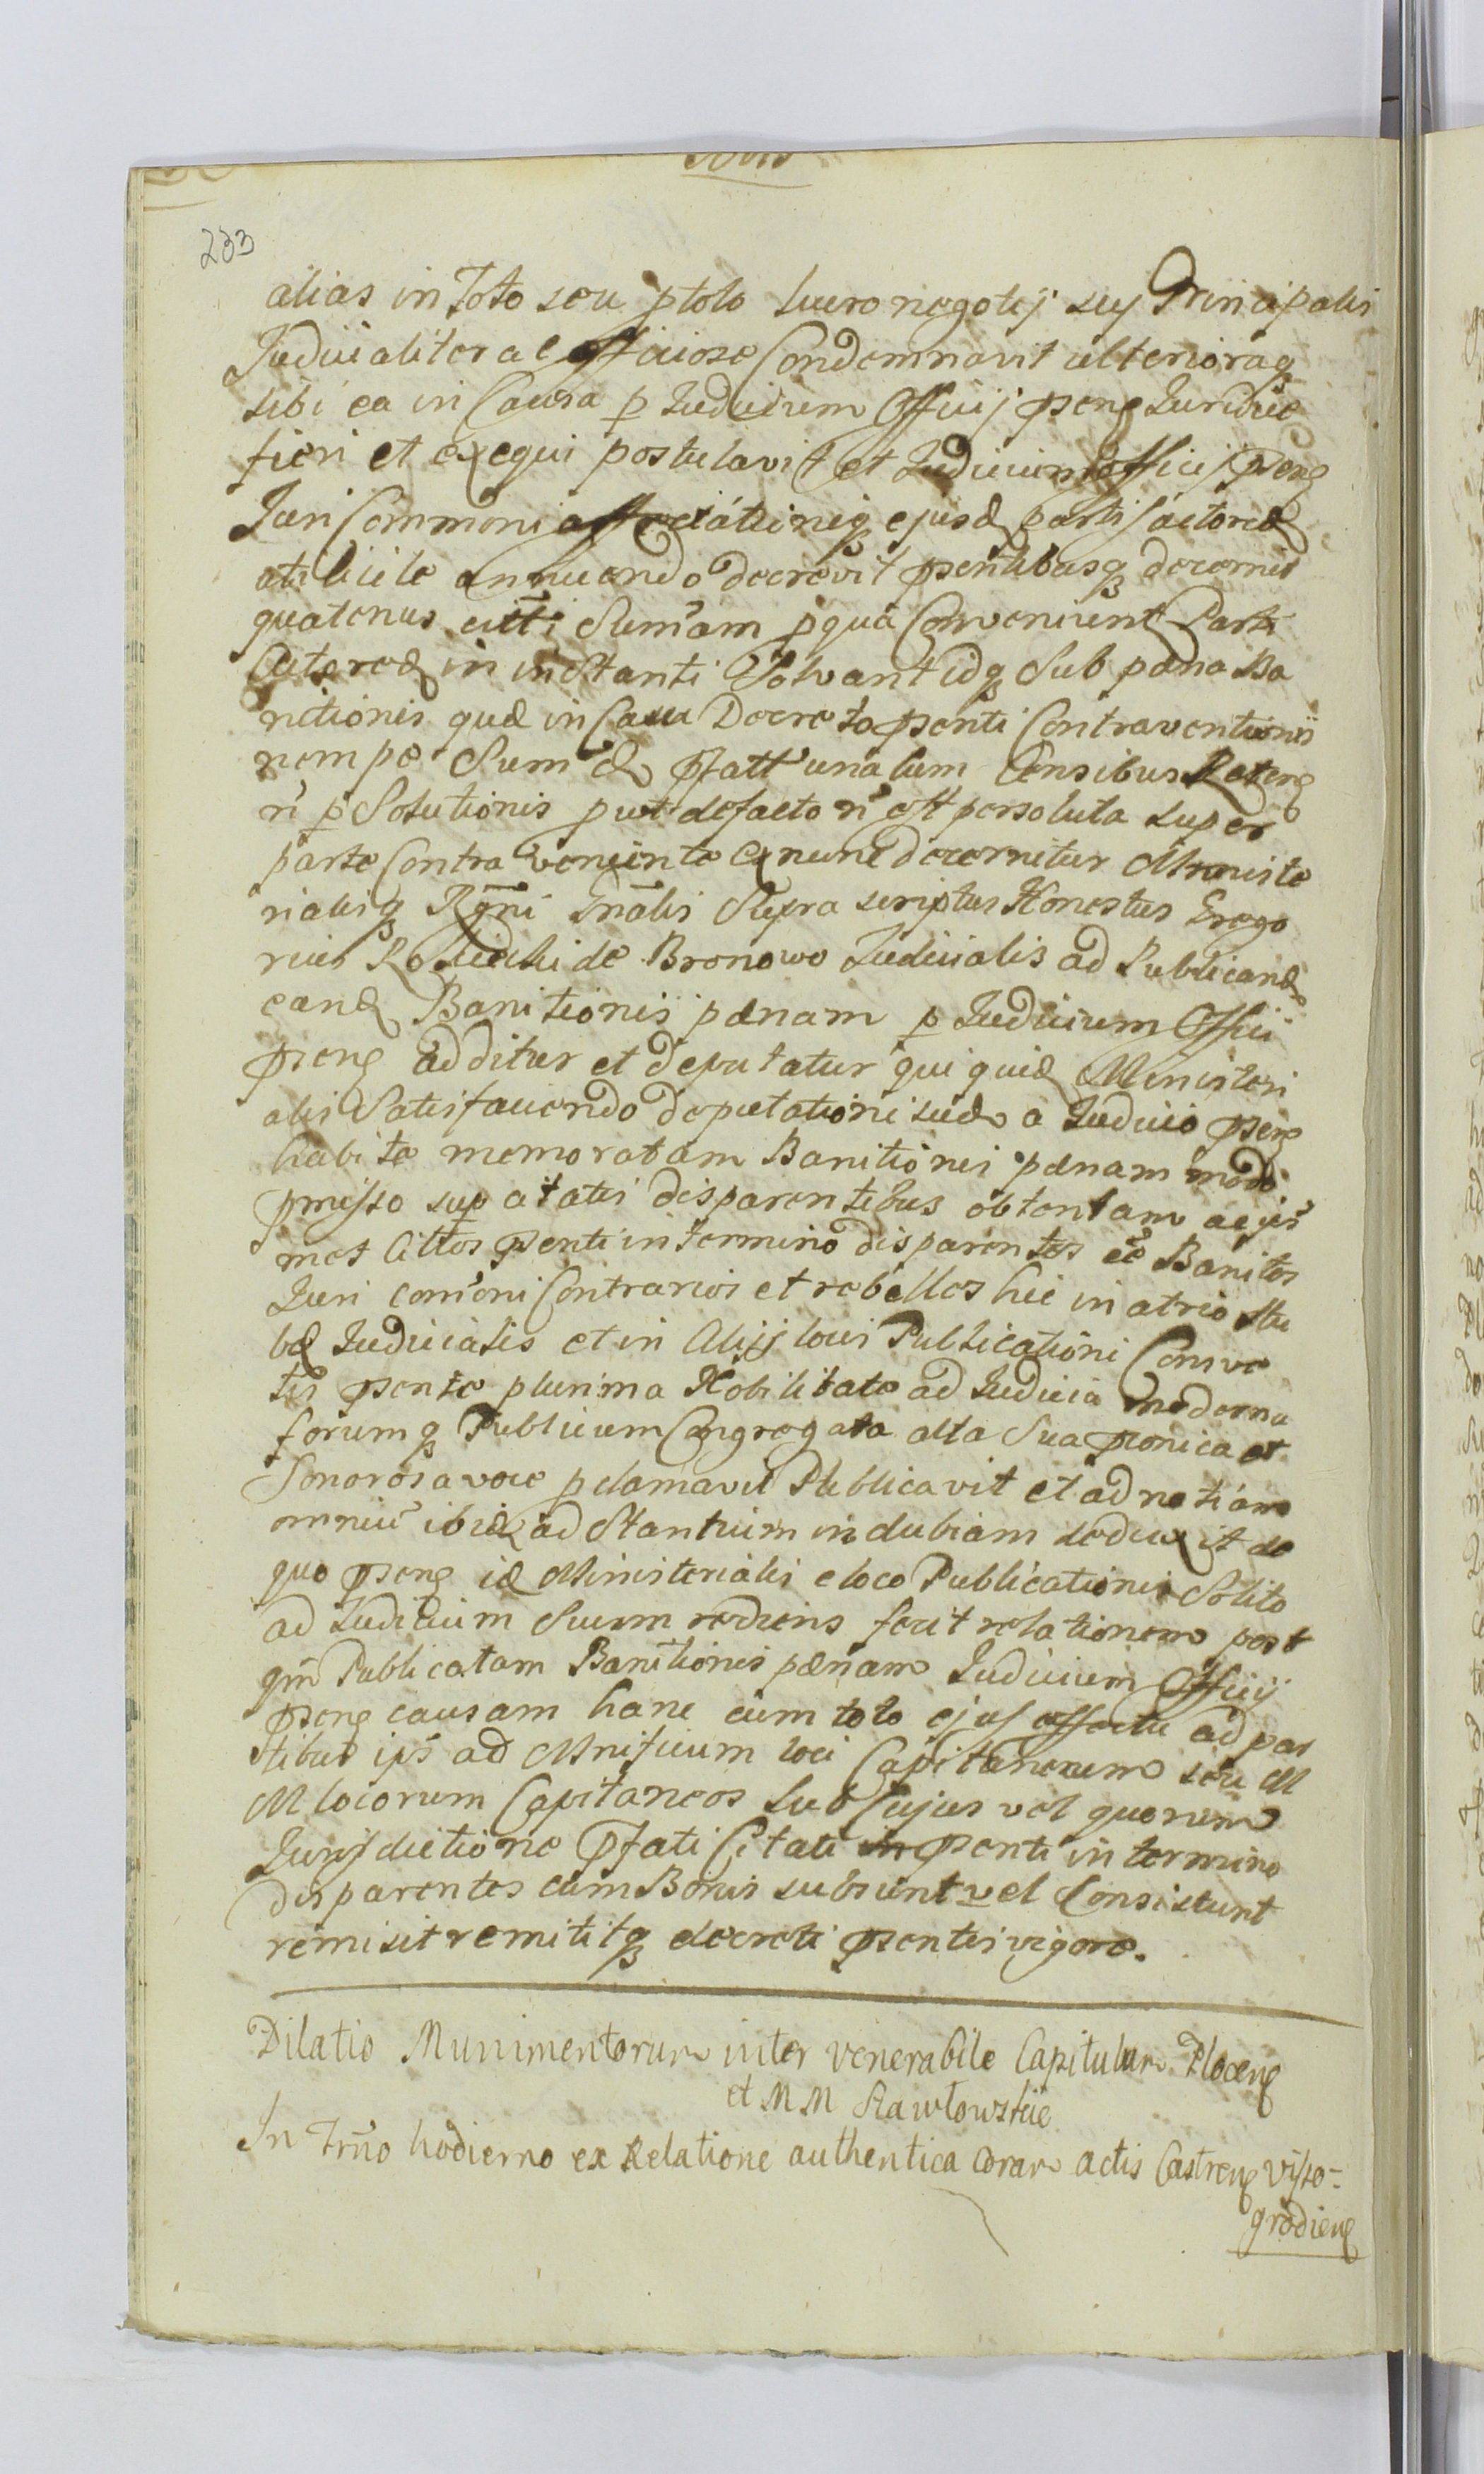 233
alias in Toto seu ptoto lucro negotij suj Principalis
Judicialiter ac officiose Condemnavit ulterioraq
sibi ea in Causa p Judicium Officij psens Juridice
fieri et exequi postulavit et Judicium officij psens
Juri Communi affectationiq ejusd partis actoreæ
uti licite annuendo decrevit psentibusq decernit
quatenus citti Sumam p qua Conveniunt Parti
Actoreæ in instanti Solvant idq Sub pæna Ba
nitionis quæ in Casu Decreto psenti Contraventionis
nempe Sumæ pfatt una cum Censibus Reten
n p Solutionis put defacto n est persoluta super
parte Contra veniente ex nunc decernitur Ministe
rialisq Rgni Gnalis Supra scriptus Honestus Grego
rius de Bronowo Judicialis ad Publicand
eand Banitionis pænam p Judicium Officii
psens additur et deputatur qui quid Ministeri
alis Satisfaciendo deputationi suæ a Judicio psen
habitæ memoratam Banitionis pænam modo
pmisso sup citatis disparentibus obtentam
met Cittos psenti in termino disparentes ee Banitos
Juri comoni Contrarios et rebelles hic in atrio Stu
bæ Judicialis et in Alijs locis Publicationi Consve
tis psente plurima Nobilitate ad Judicia moderna
forumq Publicum Congregata alta Sua pconica et
Sonorosa voce pclamavit Publicavit et ad notiam
omniu ibid ad Stantium indubiam deduxit de
quo psens id Ministerialis e loco Publicationis Solito
ad Judicium Suum rediens fecit relationem post
qm Publicatam Banitionis pænam Judicium Officij
psens causam hanc cum toto ejus effectu ad par
tibus ips ad Mnificum loci Capitaneum seu M
M locorum Capitaneos Sub Cujus vel quorum
Jurisdictione pfati Citati psenti in termino
disparentes cum Bonis subsunt vel Consistunt
remisit remititq decreti psentis vigore.
Dilatio Munimentorum inter venerabile Capitulum Plocens
et M M
In Trno hodierno ex Relatione authentica coram actis Castrens Visso-
grodiens